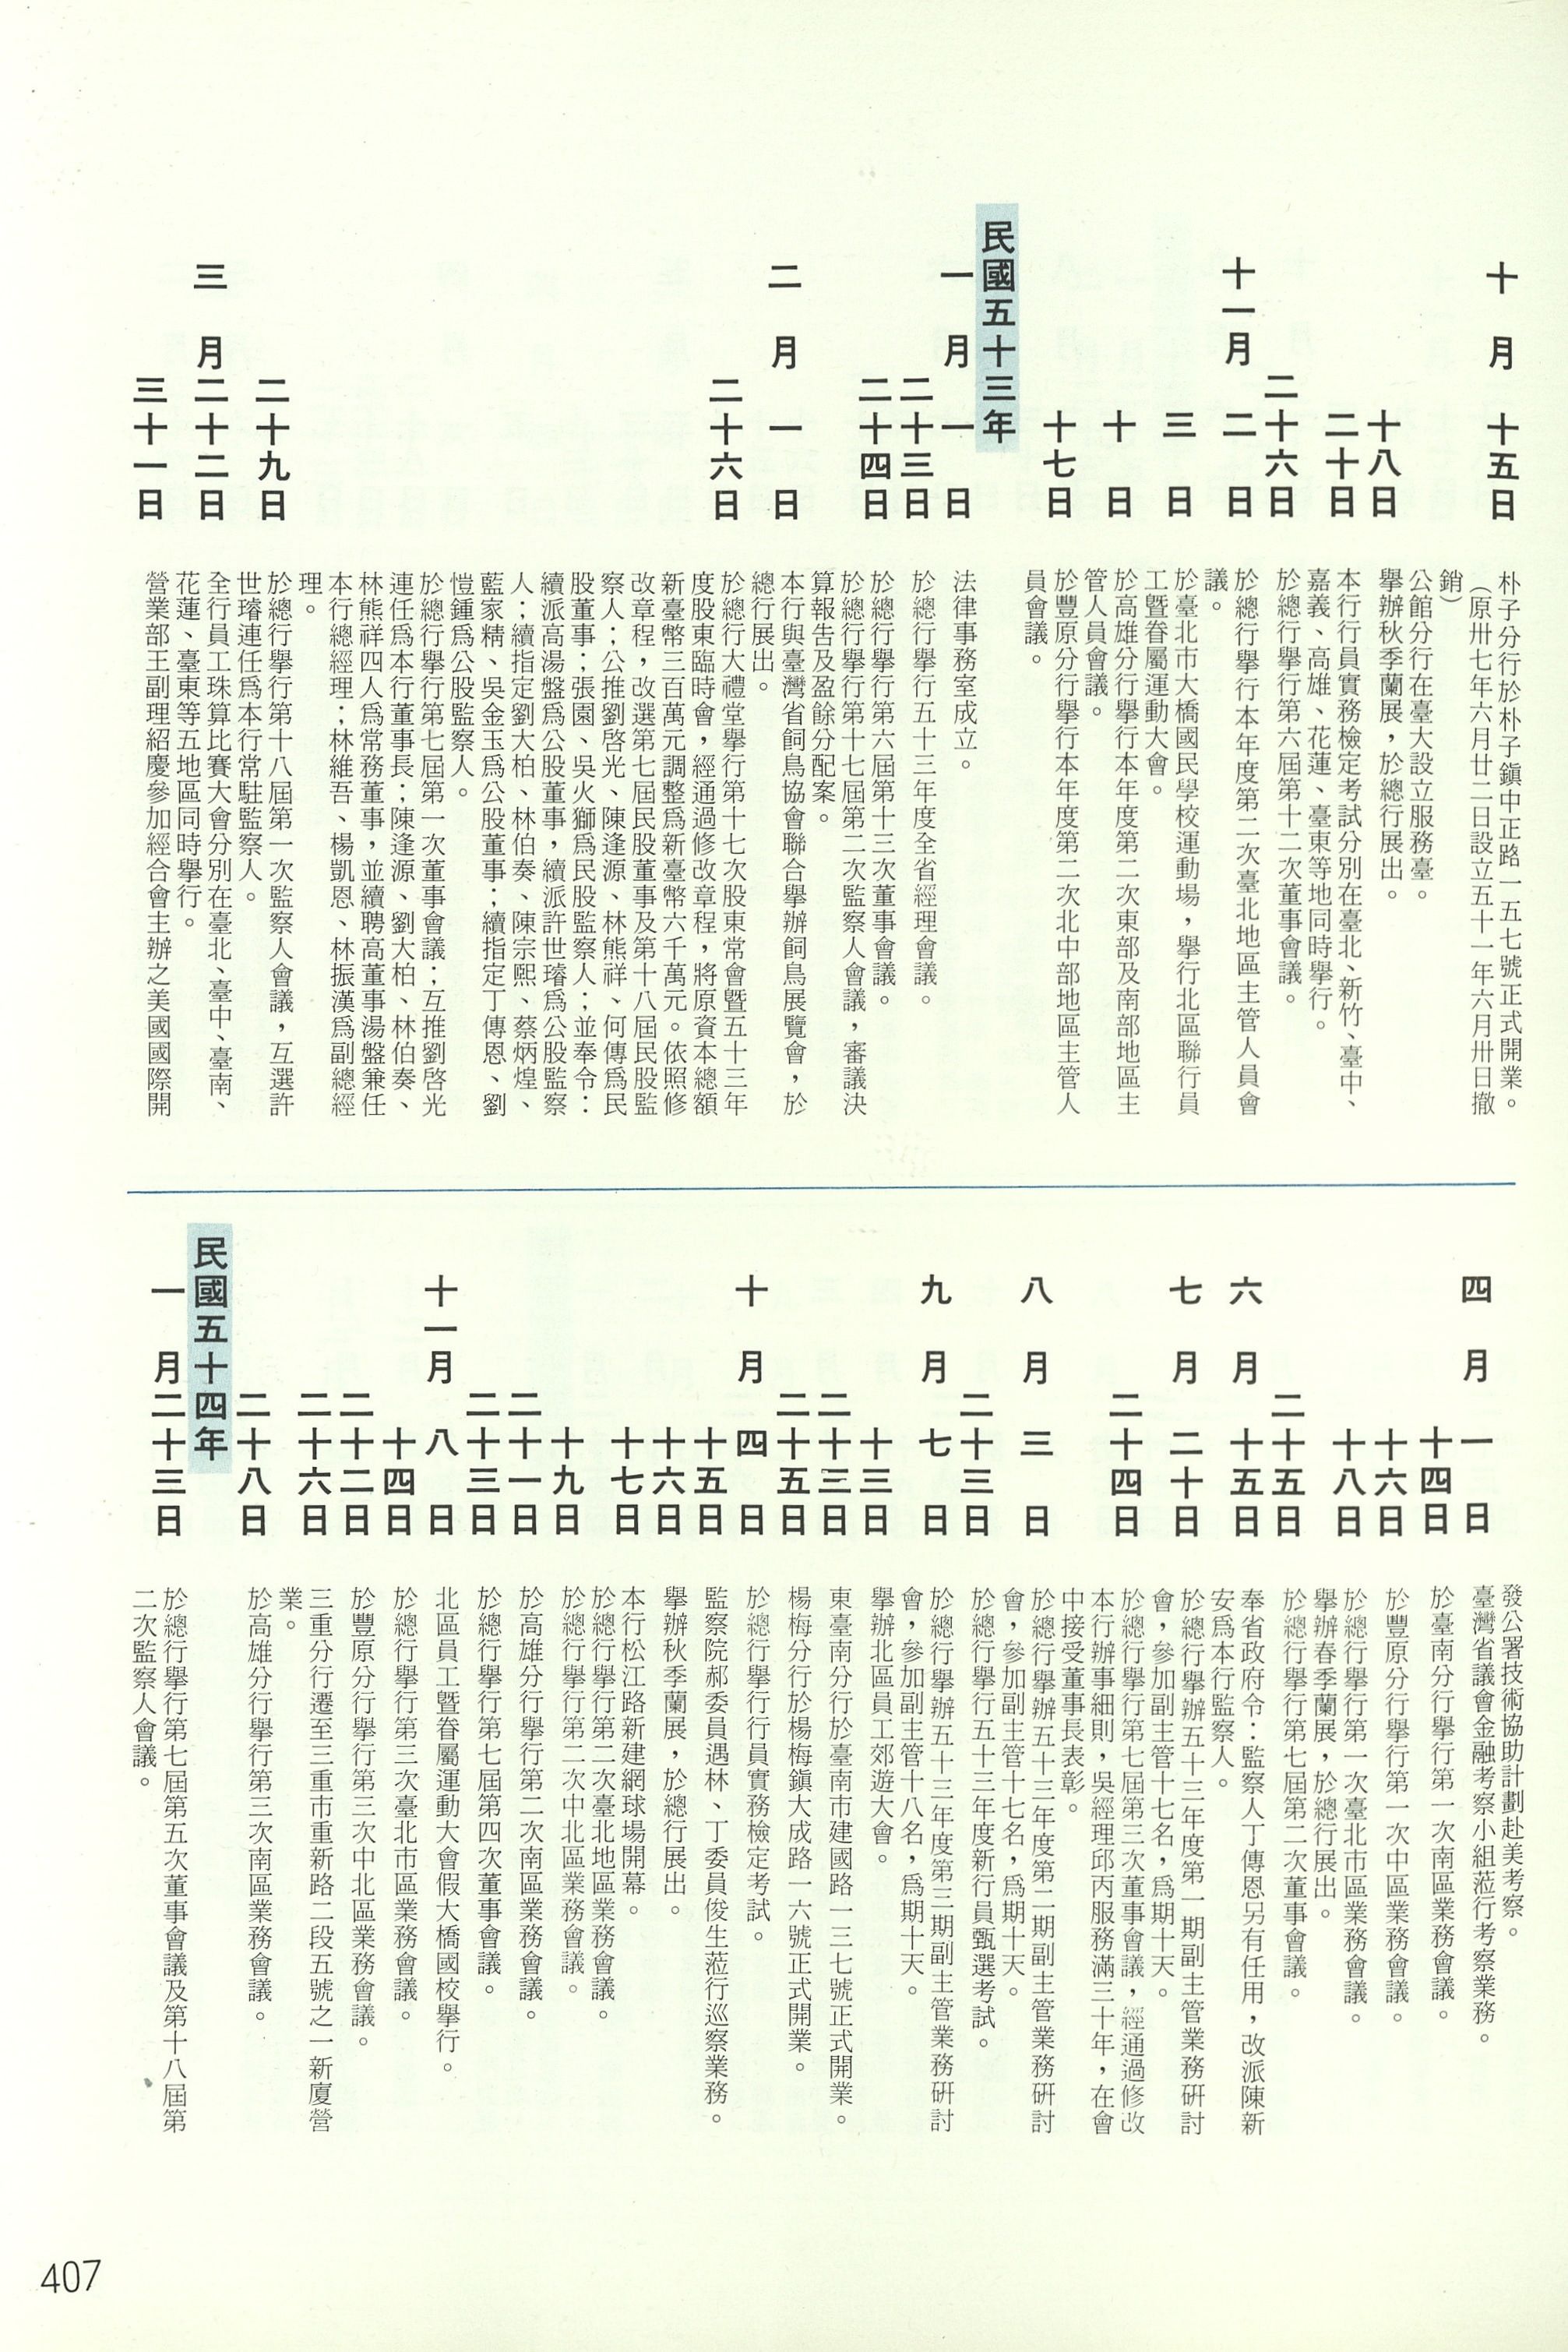 十月十五日
朴子分行於朴子鎭中正路一五七號正式開業。
(原卅七年六月廿二日設立五十一年六月卅日撤
銷)
十八日
公館分行在臺大設立服務臺。
舉辦秋季蘭展,於總行展出。
二十日
本行行員實務檢定考試分別在臺北、新竹、臺中、
嘉義、高雄、花蓮、臺東等地同時舉行。
二十六日
於總行舉行第六屆第十二次董事會議。
十一月二日
於總行舉行本年度第二次臺北地區主管人員會
議。
三日
於臺北市大橋國民學校運動場,舉行北區聯行員
工曁眷屬運動大會。
十日
於高雄分行舉行本年度第二次東部及南部地區主
管人員會議。
十七日
於豐原分行舉行本年度第二次北中部地區主管人
員會議。
民國五十三年
一月一日
法律事務室成立。
二十三日
於總行舉行五十三年度全省經理會議。
二十四日
於總行舉行第六屆第十三次董事會議。
於總行舉行第十七屆第二次監察人會議,審議決
算報吿及盈餘分配案。
二月一日
本行與臺灣省飼鳥協會聯合舉辦飼鳥展覽會,於
總行展出。
二十六日
於總行大禮堂舉行第十七次股東常會曁五十三年
度股東臨時會,經通過修改章程,將原資本總額
新臺幣三百萬元調整爲新臺幣六千萬元。依照修
改章程,改選第七屆民股董事及第十八屆民股監
察人;公推劉啓光、陳逢源、林熊祥、何傳爲民
股董事;張園、吳火獅爲民股監察人;並奉令:
續派高湯盤爲公股董事,續派許世璿爲公股監察
人;續指定劉大柏、林伯奏、陳宗熙、蔡炳煌、
藍家精、吳金玉爲公股董事;續指定丁傳恩、劉
愷鍾爲公股監察人。
於總行舉行第七屆第一次董事會議;互推劉啓光
連任爲本行董事長;陳逢源、劉大柏、林伯奏、
林熊祥四人爲常務董事,並續聘高董事湯盤兼任
本行總經理;林維吾、楊凱恩、林振漢爲副總經
理。
二十九日
於總行舉行第十八屆第一次監察人會議,互選許
世璿連任爲本行常駐監察人。
三月二十二日
全行員工珠算比賽大會分別在臺北、臺中、臺南、
花蓮、臺東等五地區同時舉行。
三十一日
營業部王副理紹慶參加經合會主辦之美國國際開
發公署技術協助計劃赴美考察。
四月一日
臺灣省議會金融考察小組蒞行考察業務。
十四日
於臺南分行舉行第一次南區業務會議。
十六日
於豐原分行舉行第一次中區業務會議。
十八日
於總行舉行第一次臺北市區業務會議。
舉辦春季蘭展,於總行展出。
二十五日
於總行舉行第七屆第二次董事會議。
六月十五日
奉省政府令:監察人丁傳恩另有任用,改派陳新
安爲本行監察人。
七月二十日
於總行舉辦五十三年度第一期副主管業務硏討
會,參加副主管十七名,爲期十天。
二十四日
於總行舉行第七屆第三次董事會議,經通過修改
本行辦事細則,吳經理邱丙服務滿三十年,在會
中接受董事長表彰。
八月三日
於總行舉辦五十三年度第二期副主管業務硏討
會,參加副主管十七名,爲期十天。
二十三日
於總行舉行五十三年度新行員甄選考試。
九月七日
於總行舉辦五十三年度第三期副主管業務硏討
會,參加副主管十八名,爲期十天。
十三日
舉辦北區員工郊遊大會。
二十三日
東臺南分行於臺南市建國路一三七號正式開業。
二十五日
楊梅分行於楊梅鎭大成路一六號正式開業。
十月四日
於總行舉行行員實務檢定考試。
十五日
監察院郝委員遇林、丁委員俊生蒞行巡察業務。
十六日
舉辦秋季蘭展,於總行展出。
十七日
本行松江路新建網球場開幕。
於總行舉行第二次臺北地區業務會議。
十九日
於總行舉行第二次中北區業務會議。
二十一日
於高雄分行舉行第二次南區業務會議。
二十三日
於總行舉行第七屆第四次董事會議。
十一月八日
北區員工曁眷屬運動大會假大橋國校舉行。
十四日
於總行舉行第三次臺北市區業務會議。
二十二日
於豐原分行舉行第三次中北區業務會議。
二十六日
三重分行遷至三重市重新路二段五號之一新廈營
業。
二十八日
於高雄分行舉行第三次南區業務會議。
民國五十四年
一月二十三日
於總行舉行第七屆第五次董事會議及第十八屆第
二次監察人會議。
407